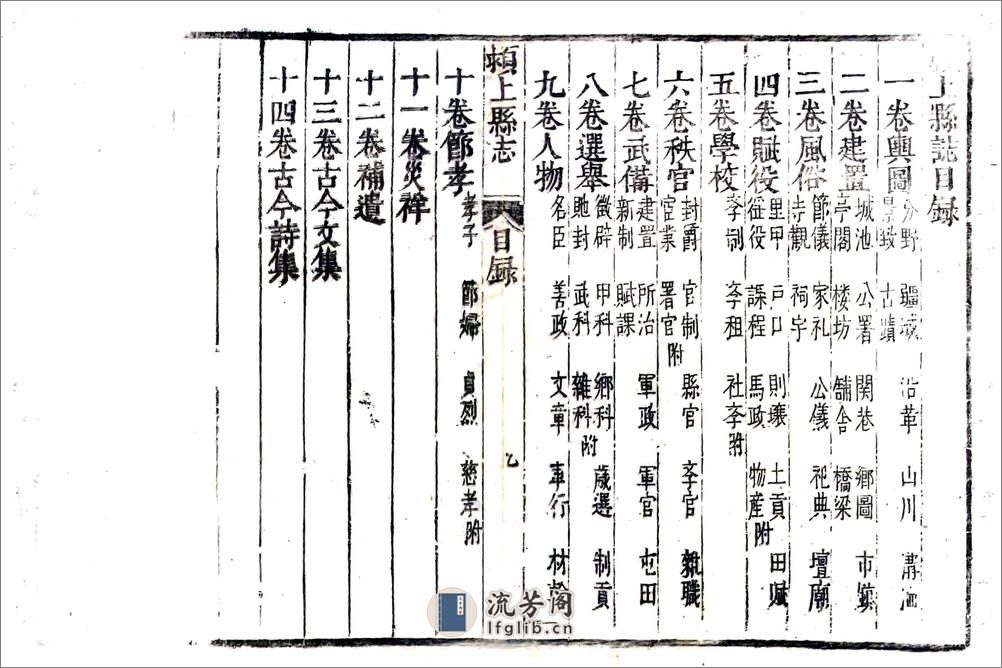 潁上縣誌目録
一卷輿圖 分野 疆域 沿革 山川 溝洫
景致 古蹟
二卷建置 城池 公署 関巷 鄉圖 市鎮
亭閣 楼坊 舖舎 橋梁
三卷風俗 節儀 家礼 公儀 祀典 壇廟
寺觀 祠宇
四卷賦役 里甲 戸口 則壤 土貢 田賦
徭役 課程 馬政 物産附
五卷學校 孝制 孝租 社孝附
六卷秩官 封爵 官制 縣官 孝官 雜職
宦業 署官附
七卷武備 建置 所治 軍政 軍官 屯田
新制 賦課
八卷選舉 徵辟 甲科 鄉科 歲選 制貢
馳封 武科 雜科附
九卷人物 名臣 善政 文章 軍行 材幹
潁上縣志
目録
乙
十卷節孝 孝子 節婦 貞烈 慈孝附
十一卷災祥
十二卷補遺
十三卷古今文集
十四卷古今詩集
流芳阁
lfglib.cn